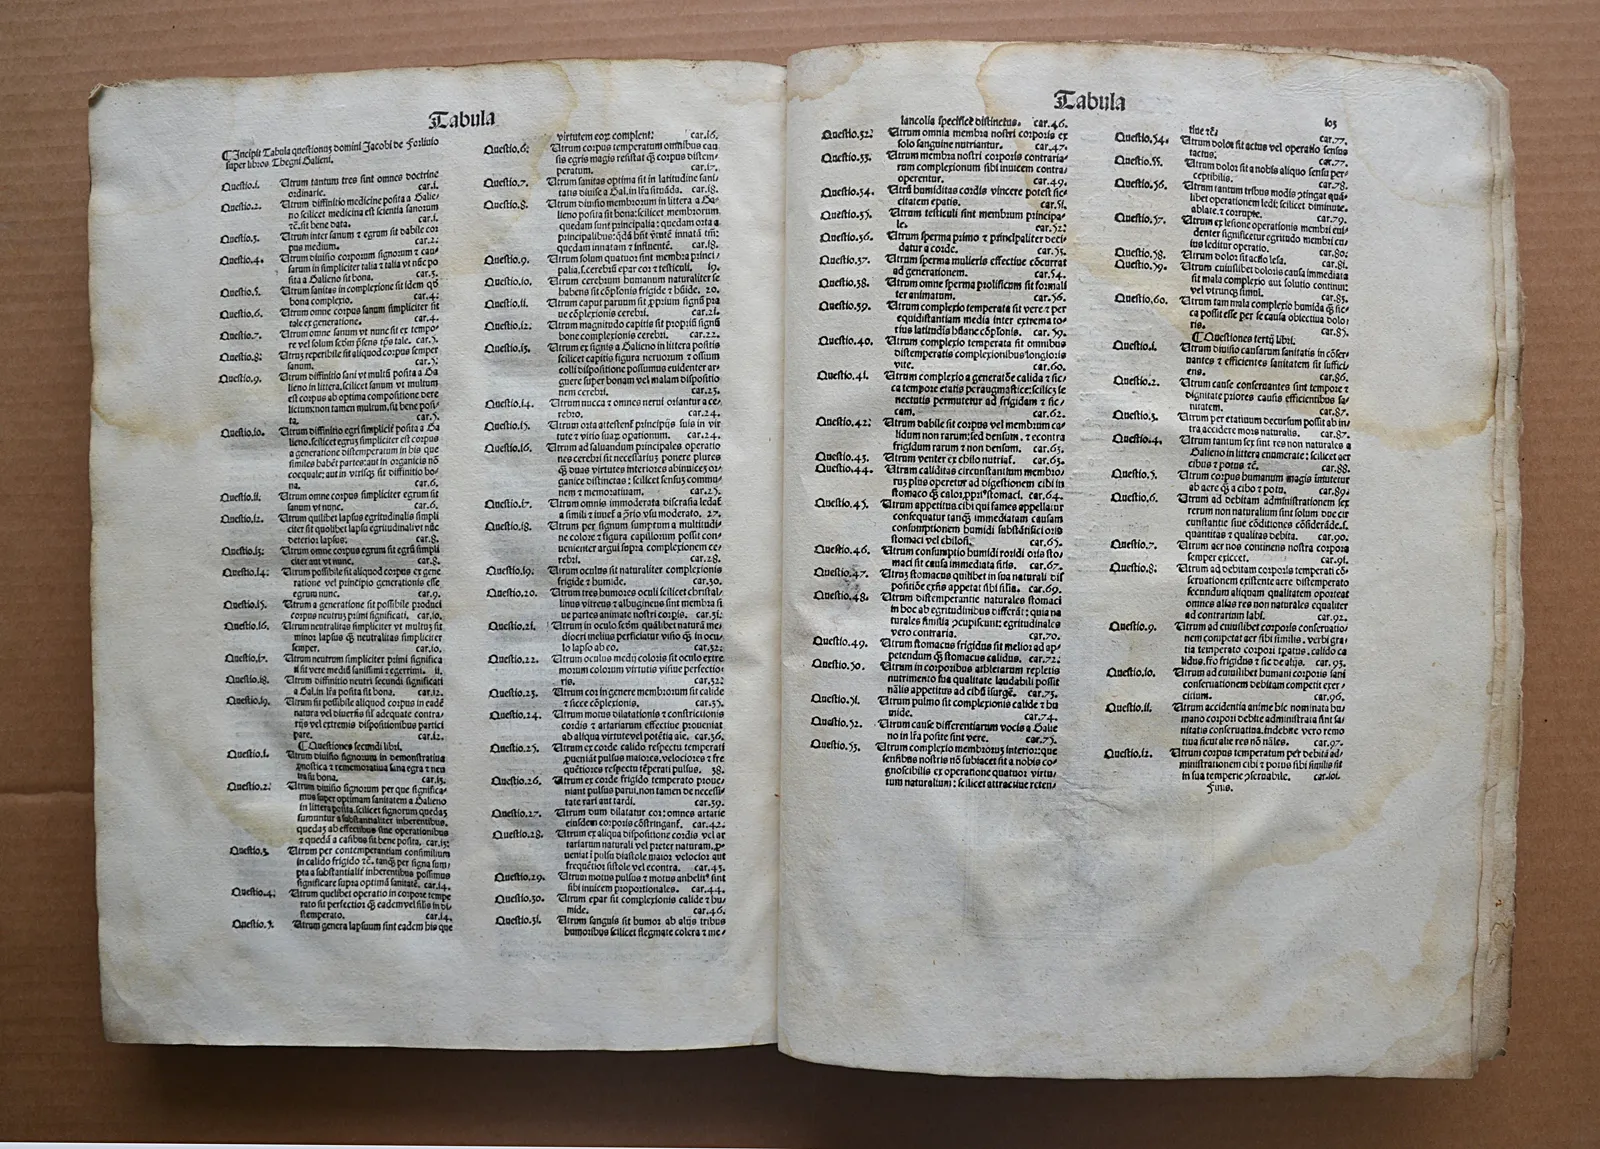 Tabula
¶ Incipit Tabula questionuʒ domini Jacobi de Forliuio
super libros Thegni Galieni.
Questio.1. Utrum tantum tres sint omnes doctrine
ordinarie. car.1.
Questio.2. Utrum diffinitio medicine posita a Galie/
no scilicet medicina est scientia sanorum
⁊c̄. sit bene data. car.1.
Questio.3. Utrum inter sanum ⁊ egrum sit dabile cor
pus medium. car.2.
Questio.4. Utrum diuisio corporum signorum ⁊ cau/
sarum in simpliciter talia ⁊ talia vt nūc po
sita a Galieno sit bona. car.3.
Questio.5. Utrum sanitas in complexione sit idem qđ
bona complexio. car.4.
Questio.6. Utrum omne corpus sanum simpliciter sit
tale ex generatione. car.4.
Questio.7. Utrum omne sanum vt nunc sit ex tempo/
re vel solum scđm p̄sens tp̄s tale. car.5.
Questio.8. Utruʒ reperibile sit aliquod corpus semper
sanum. car.5.
Questio.9. Utrum diffinitio sani vt multū posita a Ga
lieno in littera. scilicet sanum vt multum
est corpus ab optima compositione dere
lictum: non tamen multum. sit bene posi/
ta. car.5.
Questio.10. Utrum diffinitio egri simplicit̄ posita a Ga
lieno. scilicet egruʒ simpliciter est corpus
a generatione distemperatum in his que
similes habēt partes: aut in organicis nō
coequale: aut in vtrisqʒ sit diffinitio bo/
na. car.6.
Questio.11. Utrum omne corpus simpliciter egrum sit
sanum vt nunc. car.6.
Questio.12. Utrum quilibet lapsus egritudinalis simpli
citer sit quolibet lapsu egritudinali vt nūc
deterior lapsus. car.8.
Questio.13. Utrum omne corpus egrum sit egrū simpli
citer aut vt nunc. car.8.
Questio.14. Utrum possibile sit aliquod corpus ex gene
ratione vel principio generationis esse
egrum nunc. car.9.
Questio.15. Utrum a generatione sit possibile produci
corpus neutruʒ primi significati. car.10.
Questio.16. Utrum neutralitas simpliciter vt multuʒ sit
minor lapsus qʒ neutralitas simpliciter
semper. car.10.
Questio.17. Utrum neutrum simpliciter primi significa
ti sit vere mediū sanissimi ⁊ egerrimi. 11.
Questio.18. Utrum diffinitio neutri secundi significati
a Gal. in lr̄a posita sit bona. car.12.
Questio.19. Utrum sit possibile aliquod corpus in eadē
natura vel diuersis sil̄ adequate contra/
rijs vel extremis dispositionibus partici
pare. car.12.
¶ Questiones secundi libri.
Questio.1. Utrum diuisio signorum in demonstratiua
gnostica ⁊ rememoratiua sana egra ⁊ neu
tra sit bona. car.13.
Questio.2. Utrum diuisio signorum per que significa/
mus super optimam sanitatem a Galieno
in littera posita. scilicet signorum quedaʒ
sumuntur a substantialiter inherentibus.
quedaʒ ab effectibus siue operationibus
⁊ quedā a casibus sit bene posita. car.13.
Questio.3. Utrum per contemperantiam consimilium
in calido frigido ⁊c̄. tanqʒ per signa sum/
pta a substantialit̄ inherentibus possimus
significare supra optimā sanitatē. car.14.
Questio.4. Utrum quelibet operatio in corpore tempe
rato sit perfectior qʒ eadem vel similis in di
stemperato. car.14.
Questio.5. Utrum genera lapsuum sint eadem his que
virtutem eoꝝ complent. car.16.
Questio.6. Utrum corpus temperatum omnibus cau
sis egris magis resistat qʒ corpus distem/
peratum. car.17.
Questio.7. Utrum sanitas optima sit in latitudine sani/
tatis diuise a Gal. in lr̄a situāda. car.18.
Questio.8. Utrum diuisio membrorum in littera a Ga/
lieno posita sit bona: scilicet membrorum
quedam sunt principalia: quedam orta a
principalibus: q̄dā hn̄t v̄tutē innatā tm̄:
quedam innatam ⁊ influentē. car.18.
Questio.9. Utrum solum quatuor sint membra princi/
palia. s. cerebrū epar cor ⁊ testiculi. 19.
Questio.10. Utrum cerebrum humanum naturaliter se
habens sit cōp̄lonis frigide ⁊ hūide. 20.
Questio.11. Utrum caput paruum sit ꝓprium signū pra
ue cōplexionis cerebri. car.21.
Questio.12. Utrum magnitudo capitis sit propriū signū
bone complexionis cerebri. car.22.
Questio.13. Utrum ex signis a Galieno in littera positis
scilicet capitis figura neruorum ⁊ ossium
colli dispositione possumus euidenter ar/
guere super bonam vel malam dispositio
nem cerebri. car.23.
Questio.14. Utrum nucca ⁊ omnes nerui oriantur a ce/
rebro. car.24.
Questio.15. Utrum orta attestent̄ principijs suis in vir
tute ⁊ vitio suaꝝ opationum. car.24.
Questio.16. Utrum ad saluandum principales operatio
nes cerebri sit necessariuʒ ponere plures
qʒ duas virtutes interiores abinuicē or/
ganice distinctas: scilicet sensuʒ commu/
nem ⁊ memoratiuam. car.25.
Questio.17. Utrum omnis immoderata discrasia ledat̄
a simili ⁊ iuuet̄ a 9̄rio vsu moderato. 27.
Questio.18. Utrum per signum sumptum a multitudi/
ne colore ⁊ figura capillorum possit con/
uenienter argui supra complexionem ce/
rebri. car.28.
Questio.19. Utrum oculus sit naturaliter complexionis
frigide ⁊ humide. car.30.
Questio.20. Utrum tres humores oculi scilicet christal/
linus vitreus ⁊ albugineus sint membra si
ue partes animate nostri corpis. car.31.
Questio.21. Utrum in oculo scđm qualibet naturā me/
diocri melius perficiatur visio qʒ in ocu/
lo lapso ab eo. car.32.
Questio.22. Utrum oculus medij coloris sit oculo extre
morum colorum virtutis visiue perfectio/
ris. car.32.
Questio.23. Utrum cor in genere membrorum sit calide
⁊ sicce cōplexionis. car.35.
Questio.24. Utrum motus dilatationis ⁊ constrictionis
cordis ⁊ artariarum effectiue proueniat
ab aliqua virtute vel potētia aīe. car.36.
Questio.25. Utrum ex corde calido respectu temperati
ꝓueniāt pulsus maiores. velociores ⁊ fre
quētiores respectu tēperati pulsus. 38.
Questio.26. Utrum ex corde frigido temperato proue/
niant pulsus parui. non tamen de necessi/
tate rari aut tardi. car.39.
Questio.27. Utrum dum dilatatur cor: omnes artarie
eiusdem corporis cōstringant̄. car.42.
Questio.28. Utrum ex aliqua dispositione cordis vel ar
tariarum naturali vel preter naturam. ꝓ/
ueniat ī pulsu diastole maior velocior aut
frequētior sistole vel econtra. car.43.
Questio.29. Utrum motus pulsus ⁊ motus anhelit⁹ sint
sibi inuicem proportionales. car.44.
Questio.30. Utrum epar sit complexionis calide ⁊ hu/
mide. car.46.
Questio.31. Utrum sanguis sit humor ab alijs tribus
humoribus scilicet flegmate colera ⁊ me/
Tabula
103
lancolia specifice distinctus. car.46.
Questio.32. Utrum omnia membra nostri corporis ex
solo sanguine nutriantur. car.47.
Questio.33. Utrum membra nostri corporis contraria/
rum complexionum sibi inuicem contra/
operentur. car.49.
Questio.34. Utrū humiditas cordis vincere potest sic/
citatem epatis. car.51.
Questio.35. Utrum testiculi sint membrum principa/
le. car.52.
Questio.36. Utrum sperma primo ⁊ principaliter deci/
datur a corde. car.53.
Questio.37. Utrum sperma mulieris effectiue cōcurrat
ad generationem. car.54.
Questio.38. Utrum omne sperma prolificum sit formali
ter animatum. car.56.
Questio.39. Utrum complexio temperata sit vere ⁊ per
equidistantiam media inter extrema to/
tius latitudis hūane cōp̄lonis. car.59.
Questio.40. Utrum complexio temperata sit omnibus
distemperatis complexionibus longioris
vite. car.60.
Questio.41. Utrum complexio a generatōe calida ⁊ sic/
ca tempore etatis peraugmastice: scilicʒ se
nectutis permutetur ad frigidam ⁊ sic/
cam. car.62.
Questio.42. Utrum dabile sit corpus vel membrum ca/
lidum non rarum: sed densum. ⁊ econtra
frigidum rarum ⁊ non densum. car.63.
Questio.43. Utrum venter ex chilo nutriat̄. car.63.
Questio.44. Utrum caliditas circunstantium membro/
rum plus operetur ad digestionem cibi in
stomaco qʒ calor ꝓpri⁹ stomaci. car.64.
Questio.45. Utrum appetitus cibi qui fames appellatur
consequatur tanqʒ immediatam causam
consumptionem humidi substantifici oris
stomaci vel chilosi. car.65.
Questio.46. Utrum consumptio humidi roridi oris sto/
maci sit causa immediata sitis. car.67.
Questio.47. Utruʒ stomacus quilibet in sua naturali dis
positiōe exn̄s appetat sibi similia. car.69.
Questio.48. Utrum distemperantie naturales stomaci
in hoc ab egritudinibus differāt: quia na
turales similia ꝯcupiscunt: egritudinales
vero contraria. car.70.
Questio.49. Utrum stomacus frigidus sit melior ad ap/
petendum qʒ stomacus calidus. car.72.
Questio.50. Utrum in corporibus athletarum repletis
nutrimento sua qualitate laudabili possit
nālis appetitus ad cibū isurgē. car.73.
Questio.51. Utrum pulmo sit complexionis calide ⁊ hu
mide. car.74.
Questio.52. Utrum cause differentiarum vocis a Galie
no in lr̄a posite sint vere. car.75.
Questio.53. Utrum complexio membroruʒ interior: que
sensibus nostris nō subiacet sit a nobis co/
gnoscibilis ex operatione quatuor virtu/
tum naturalium: scilicet attractiue reten/
tiue ⁊c̄. car.77.
Questio.54. Utrum dolor sit actus vel operatio sensus
tactus. car.77.
Questio.55. Utrum dolor sit a nobis aliquo sensu per/
ceptibilis. car.78.
Questio.56. Utrum tantum tribus modis ꝯtingat quā/
libet operationem ledi: scilicet diminute.
ablate. ⁊ corrupte. car.79.
Questio.57. Utrum ex lesione operationis membri eui/
denter significetur egritudo membri cu/
ius leditur operatio. car.80.
Questio.58. Utrum dolor sit actio lesa. car.81.
Questio.59. Utrum cuiuslibet doloris causa immediata
sit mala complexio aut solutio continui:
vel vtrunqʒ simul. car.83.
Questio.60. Utrum tam mala complexio humida qʒ sic/
ca possit esse per se causa obiectiua dolo/
ris. car.85.
¶ Questiones tertij libri.
Questio.1. Utrum diuisio causarum sanitatis in cōser/
uantes ⁊ efficientes sanitatem sit suffici/
ens. car.86.
Questio.2. Utrum cause conseruantes sint tempore ⁊
dignitate priores causis efficientibus sa/
nitatem. car.87.
Questio.3. Utrum per etatuum decursum possit ab in/
tra accidere mors naturalis. car.87.
Questio.4. Utrum tantum sex sint res non naturales a
Galieno in littera enumerate: scilicet aer
cibus ⁊ potus ⁊c̄. car.88.
Questio.5. Utrum corpus humanum magis imutetur
ab aere qʒ a cibo ⁊ potu. car.89.
Questio.6. Utrum ad debitam administrationem sex
rerum non naturalium sint solum due cir
cunstantie siue cōditiones cōsiderāde. s.
quantitas ⁊ qualitas debita. car.90.
Questio.7. Utrum aer nos continens nostra corpora
semper exiccet. car.91.
Questio.8. Utrum ad debitam corporis temperati cō/
seruationem existente aere distemperato
secundum aliquam qualitatem oporteat
omnes alias res non naturales equaliter
ad contrarium labi. car.92.
Questio.9. Utrum ad cuiuslibet corporis conseruatio/
nem competat aer sibi similis. verbi gra/
tia temperato corpori tp̄ratus. calido ca
lidus. frīo frigidus ⁊ sic de alijs. car.93.
Questio.10. Utrum ad cuiuslibet humani corporis sani
conseruationem debitam competit exer/
citium. car.96.
Questio.11. Utrum accidentia anime hic nominata hu/
mano corpori debite administrata sint sa/
nitatis conseruatiua. indebite vero remo
tiua sicut alie res nō nāles. car.97.
Questio.12. Utrum corpus temperatum per debitā ad/
ministrationem cibi ⁊ potus sibi similis sit
in sua temperie ꝯseruabile. car.101.
Finis.